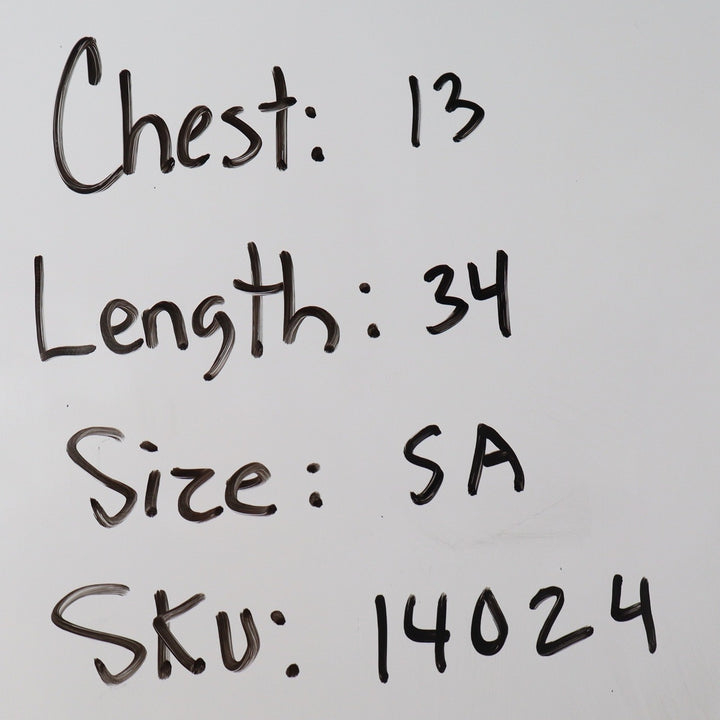 Chest: 13
Length: 34
Size: SA
SKU: 14024